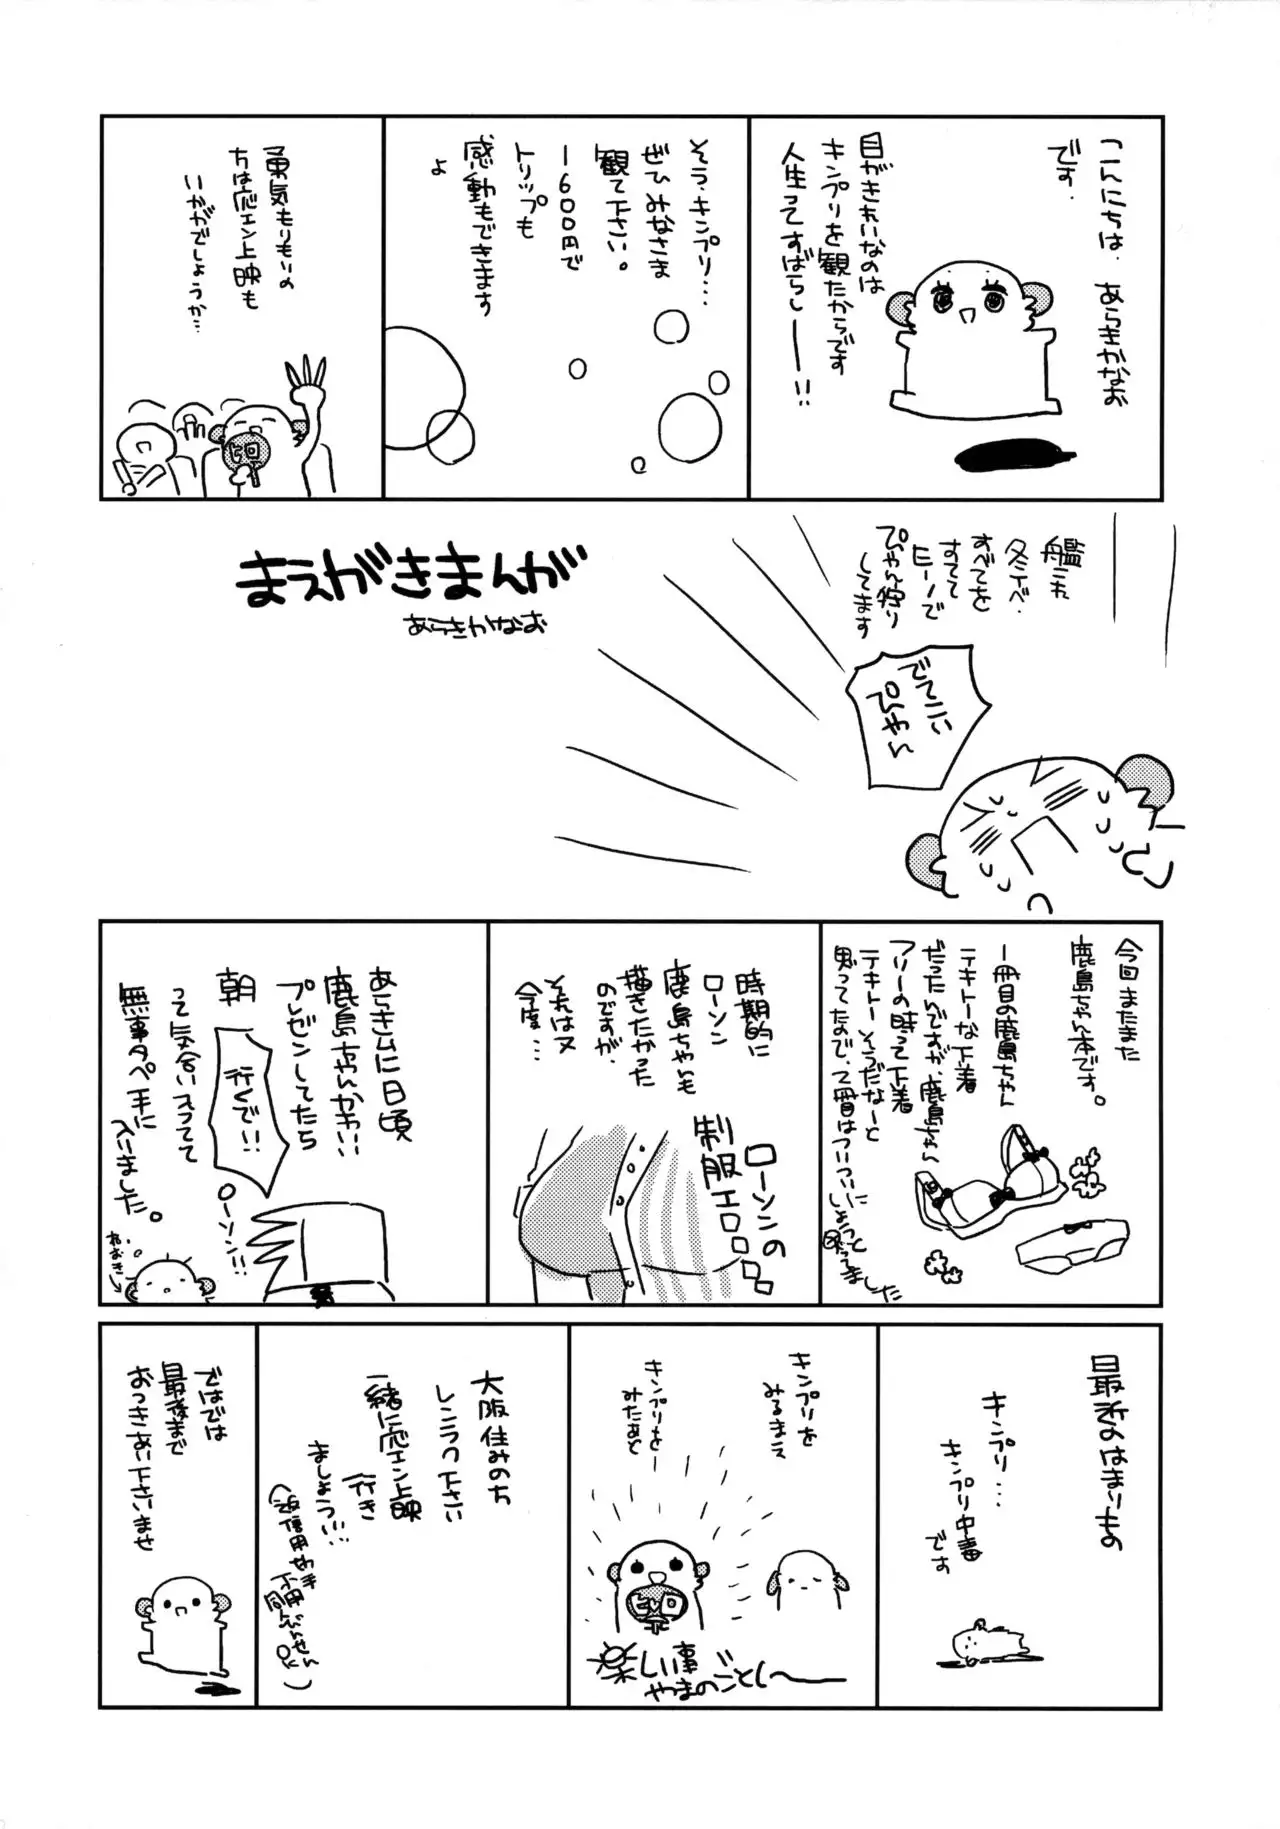 こんにちは。あらきかなお
です。
目がきれいなのは
キンプリを観たからです
人生ってすばらしーー!!
そう、キンプリ…
ぜひみなさま
観て下さい。
1600円で
トリップも
感動もできます
よ
勇気もりもりの
方は応エン上映も
いかがでしょうか…
ヒロ
まえがきまんが
あらきかなお
艦これ
冬イベ、
すべてを
すてて
ヒーハで
ぴゃん狩り
してます
でてこい
ぴゃん
今回またまた
鹿島ちゃん本です。
一冊目の鹿島ちゃん
テキトーな下着
だったんですが、鹿島ちゃん
フリーの時って下着
テキトーそうだなーと
思ってたので、2冊目はついついに
しょっと
ました
時期的に
ローソン
鹿島ちゃんも
描きたかった
のですが、
それは又
今度…
ローソンの
制服エロロロロ
あらきムに日頃
鹿島ちゃんかわいい
プレゼンしてたら
朝
行くで!!
ローソン!!
って気合い入ってて
無事タペ手に
入りました。
ねおき
最近のはまりもの
キンプリ…
キンプリ中毒
です
キンプリを
みるまえ
キンプリをー
みたあと
ヒロ
楽しい事
やまのごとし〜
大阪住みの方
レンラク下さい
一緒に応エン上映
行き
ましょう!!…
(返信用切手
不要
同人びんせん
OK)
ではでは
最後まで
おつきあい下さいませ